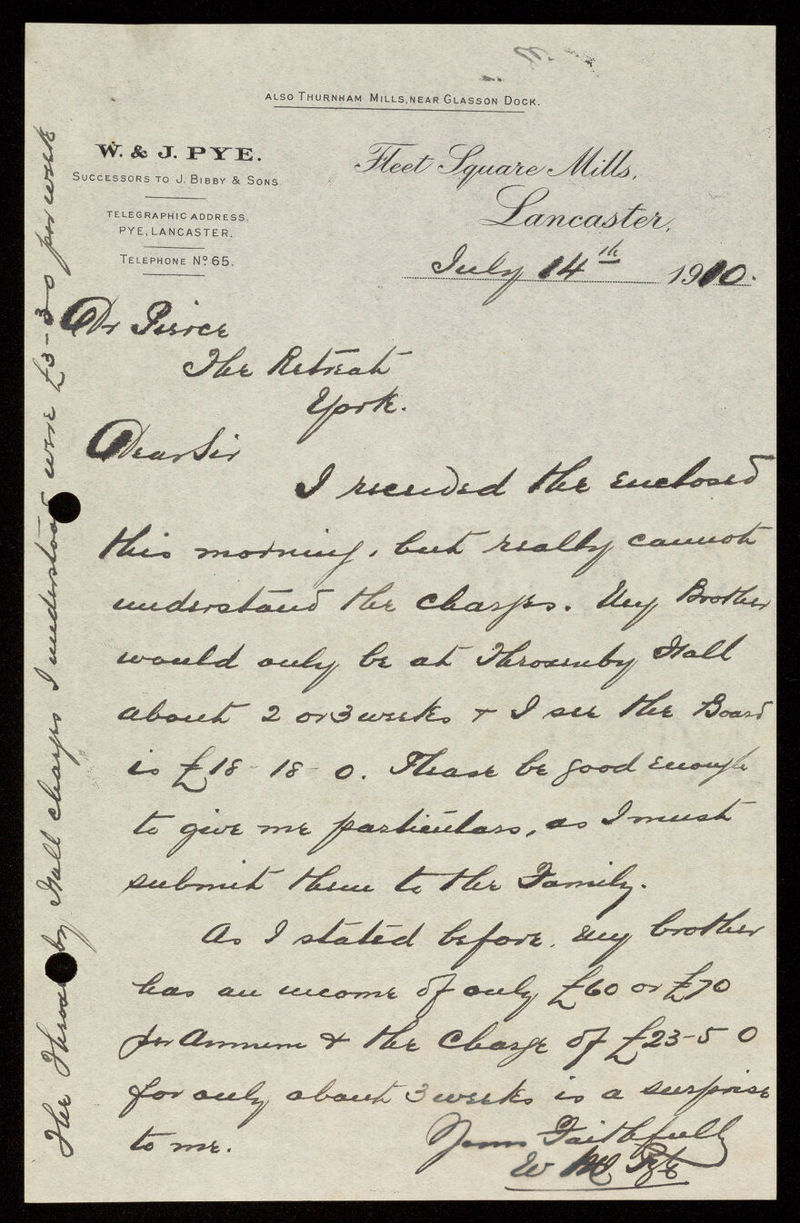 ALSO THURNHAM MILLS, NEAR GLASSON DOCK.
W. & J. PYE.
SUCCESSORS TO J. BIBBY & SONS
TELEGRAPHIC ADDRESS,
PYE, LANCASTER.
TELEPHONE No. 65.
Fleet Square Mills,
Lancaster,
July 14th 1910.
Dr Pierce
The Retreat
York.
Dear Sir
I received the enclosed
this morning, but really cannot
understand the charges. My Brother
would only be at Throxenby Hall
about 2 or 3 weeks & I see the Board
is £18-18-0. Please be good enough
to give me particulars, as I must
submit them to the Family.
As I stated before, my brother
has an income of only £60 or £70
per Annum & the charge of £23-5-0
for only about 3 weeks is a surprise
to me.
Yours Faithfully
W Pye
The Throxenby Hall charges I understood were £3-3-0 per week